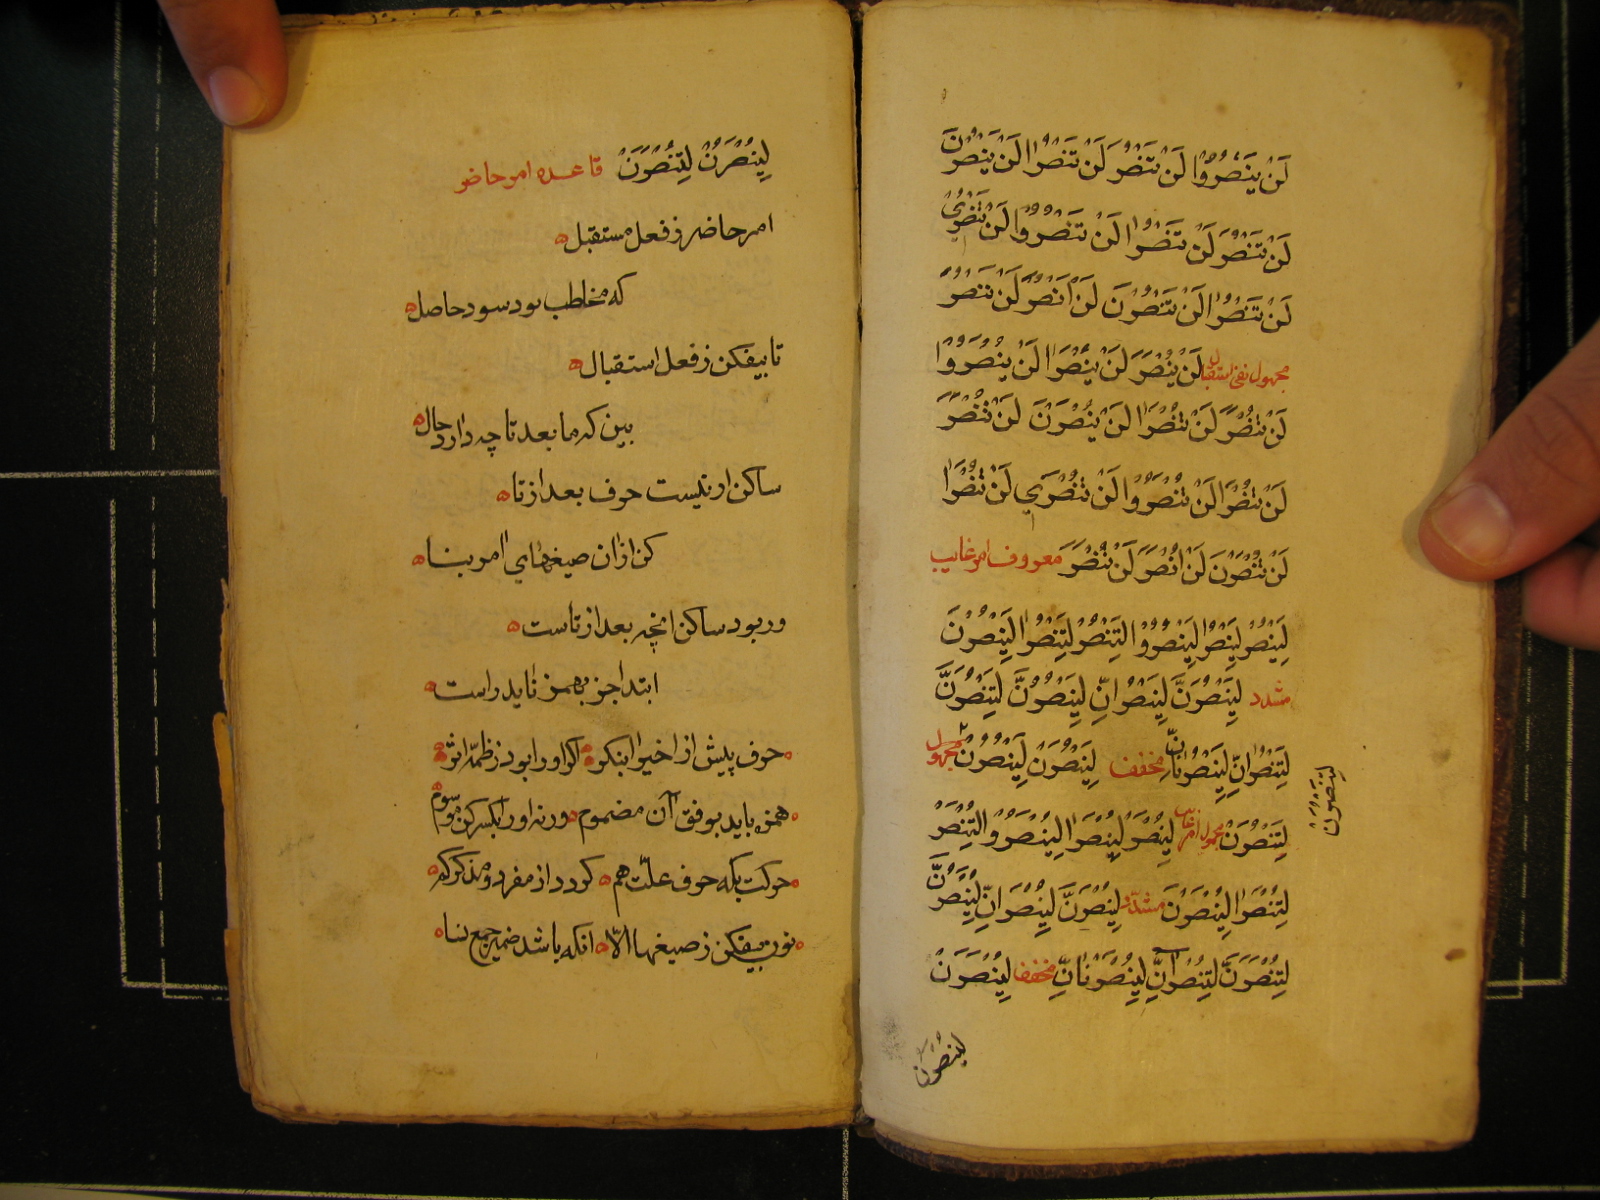 لَنْ يَنْصُرُوْا لَنْ تَنْصُرَ لَنْ تَنْصُرَا لَنْ يَنْصُرْنَ
لَنْ تَنْصُرَ لَنْ تَنْصُرَا لَنْ تَنْصُرُوْا لَنْ تَنْصُرِيْ
لَنْ تَنْصُرَا لَنْ تَنْصُرْنَ لَنْ اَنْصُرَ لَنْ نَنْصُرَ
مجهول نفی استقبال لَنْ يُنْصَرَ لَنْ يُنْصَرَا لَنْ يُنْصَرُوْا
لَنْ تُنْصَرَ لَنْ تُنْصَرَا لَنْ يُنْصَرْنَ لَنْ تُنْصَرَ
لَنْ تُنْصَرَا لَنْ تُنْصَرُوْا لَنْ تُنْصَرِيْ لَنْ تُنْصَرَا
لَنْ تُنْصَرْنَ لَنْ اُنْصَرَ لَنْ نُنْصَرَ معروف امر غایب
لِيَنْصُرْ لِيَنْصُرَا لِيَنْصُرُوْا لِتَنْصُرْ لِتَنْصُرَا لِيَنْصُرْنَ
مشدد لِيَنْصُرَنَّ لِيَنْصُرَانِّ لِيَنْصُرُنَّ لِتَنْصُرَنَّ
لِتَنْصُرَانِّ لِيَنْصُرْنَانِّ مخفف لِيَنْصُرَنْ لِيَنْصُرُنْ مجهول
لِتَنْصُرَنْ مجهول امر غایب لِيُنْصَرْ لِيُنْصَرَا لِيُنْصَرُوْا لِتُنْصَرْ
لِتُنْصَرَا لِيُنْصَرْنَ مشدد لِيُنْصَرَنَّ لِيُنْصَرَانِّ لِيُنْصَرُنَّ
لِتُنْصَرَنَّ لِتُنْصَرَانِّ لِيُنْصَرْنَانِّ مخفف لِيُنْصَرَنْ
لِتَنْصُرَنْ
لینصرن
لِيُنْصَرُنْ لِتُنْصَرَنْ قاعده امر حاضر
امر حاضر ز فعل مستقبل
که مخاطب بود سود حاصل
تا بیفکن ز فعل استقبال
بین که ما بعد تا چه دارد حال
ساکن ار نیست حرف بعد از تا
کن ازان صیغهای امر بنا
ور بود ساکن انچه بعد از تاست
ابتدا جز بهمز ناید راست
حرف پیش از اخیر را بنکر اکر او را بود ز ظمه اثر
همزه باید بوفق آن مضموم ورنه او را بکسر کن موسوم
حرکت بلکه حرف علت هم کردد از مفرد و مذکر کم
نون بیفکن ز صیغها الا انکه باشد ضمیر جمع نسا